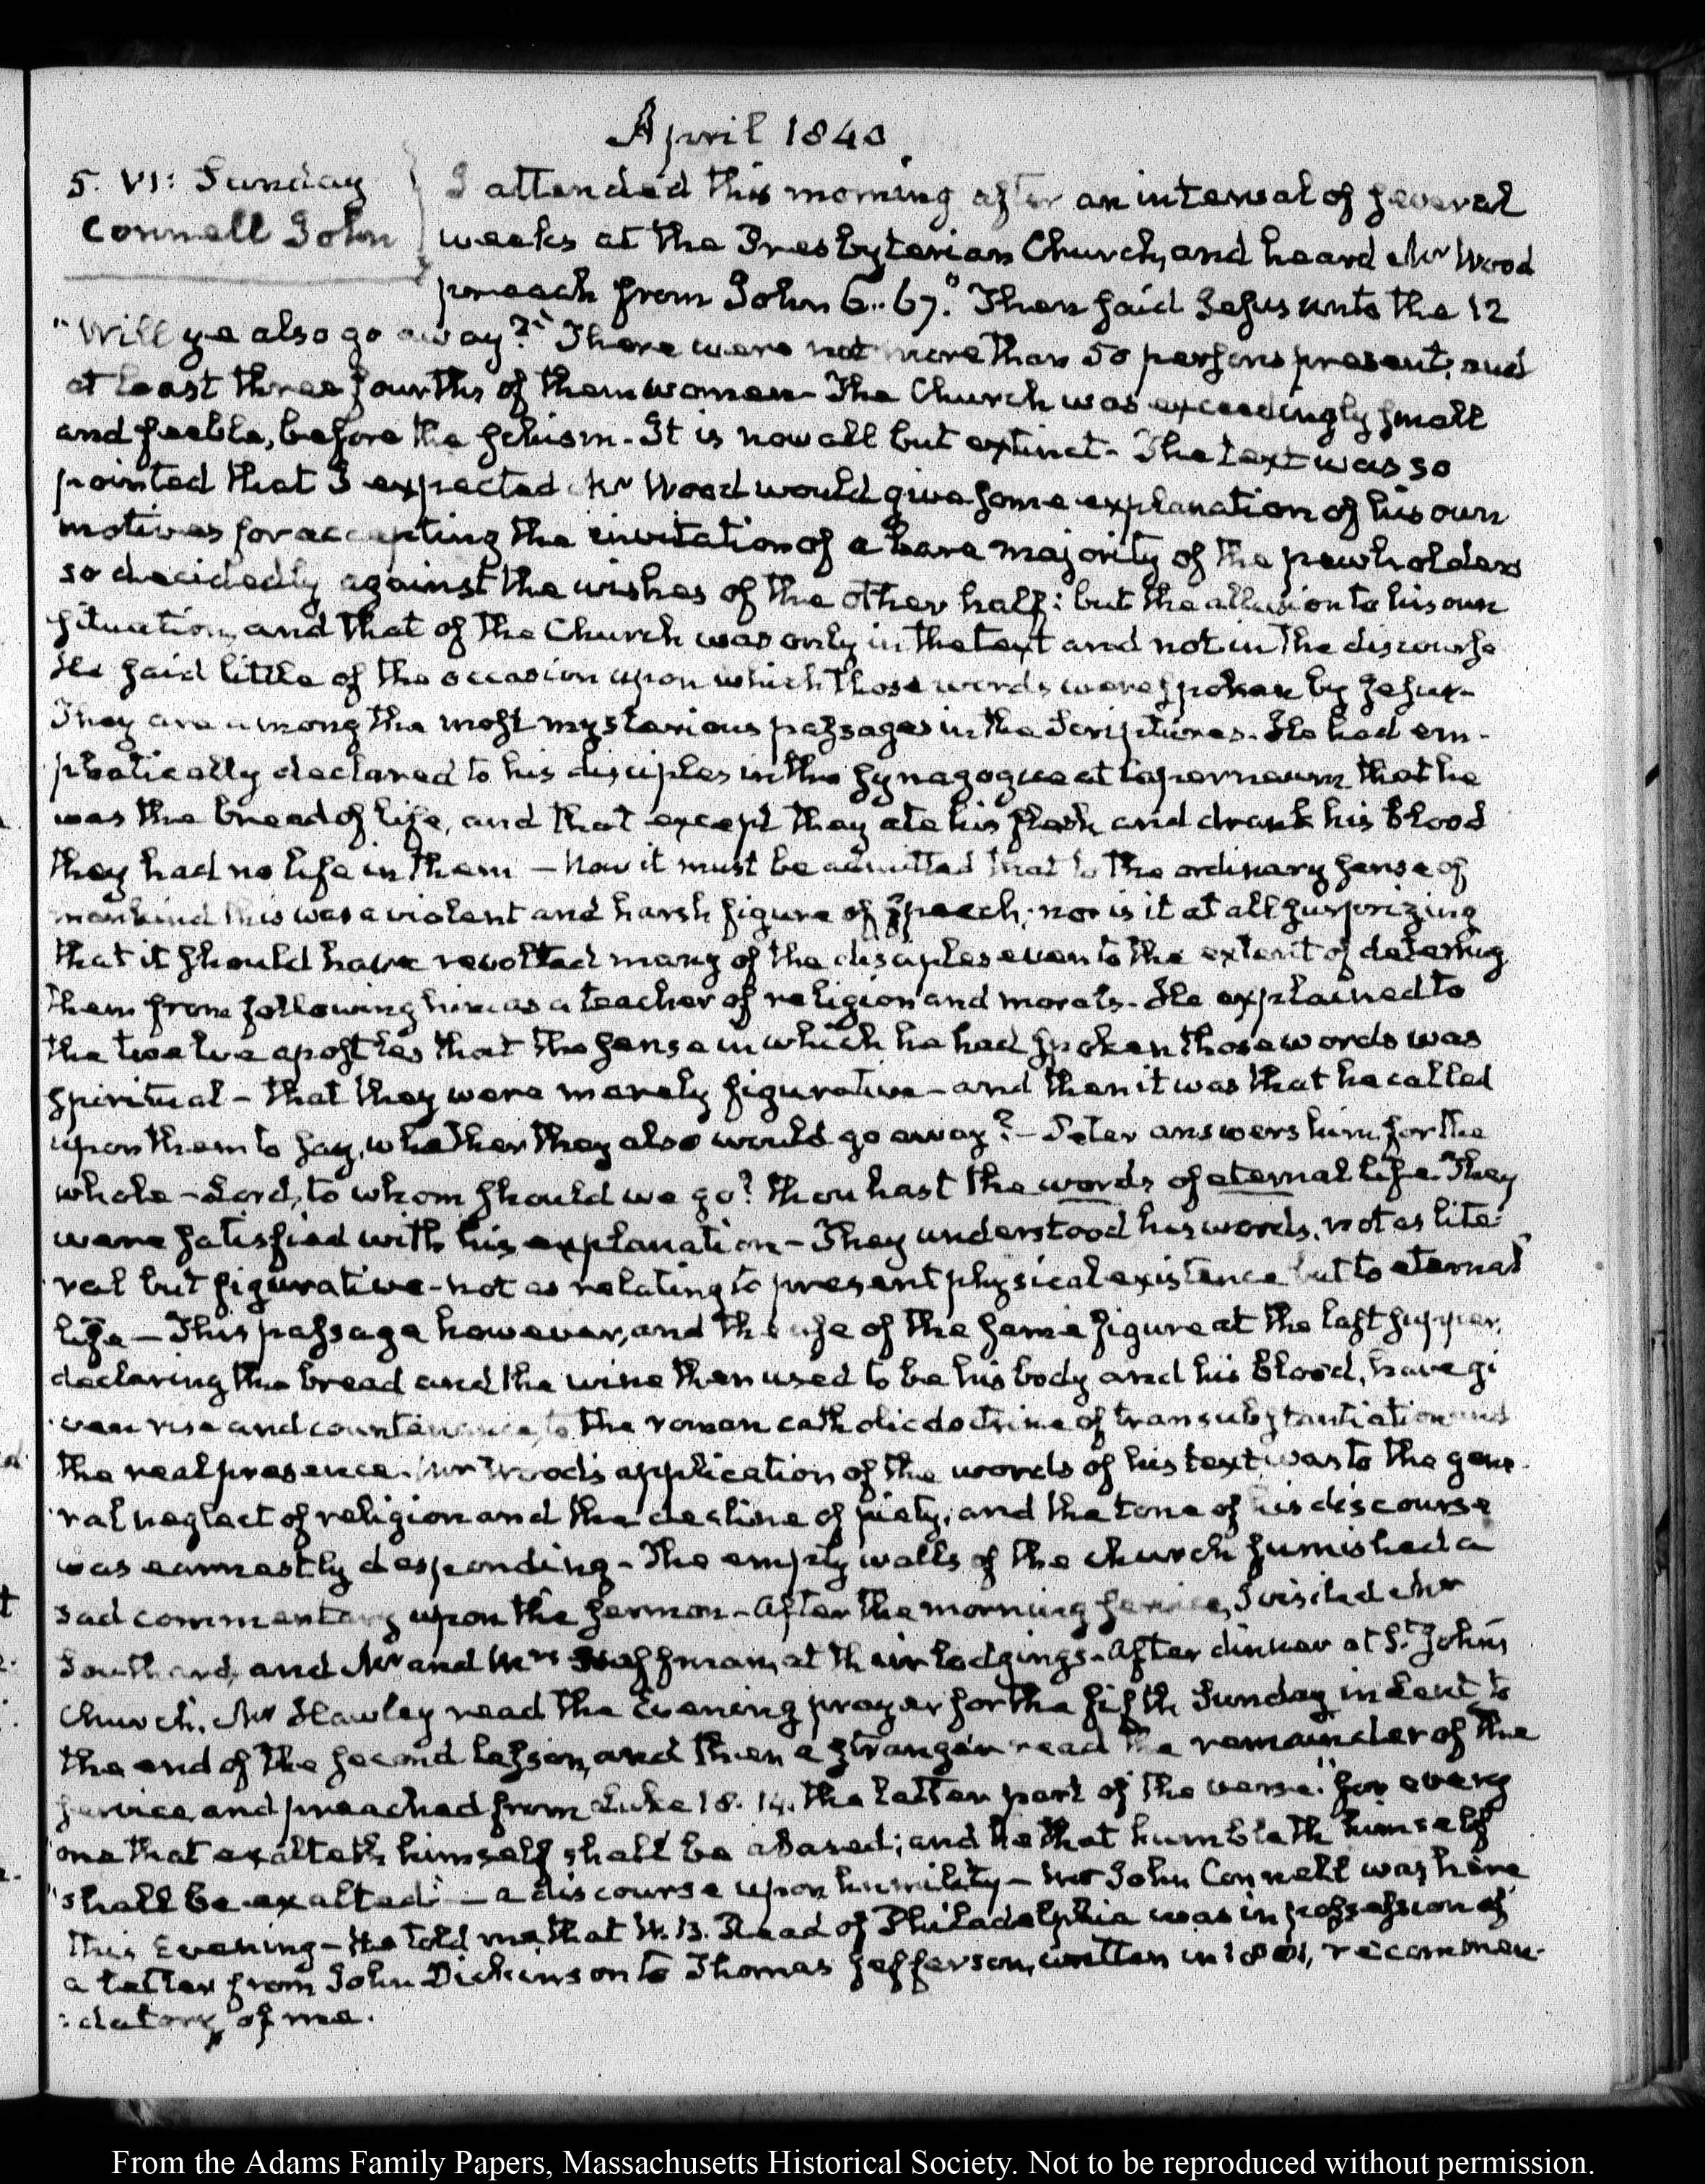 April 1840.
5. VI: Sunday
Connell John
I attended this morning after an interval of several
weeks at the Presbyterian Church, and heard Mr Wood
preach from John 6..67. "Then said Jesus unto the 12
"Will ye also go away?" There were not more than 50 persons present, and
at least three fourths of them women- The Church was exceedingly small
and feeble, before the schism- It is now all but extinct- The text was so
pointed that I expected Mr Wood would give some explanation of his own
motives for accepting the invitation of a bare majority of the pewholders
so decidedly against the wishes of the other half: but the allusion to his own
situation, and that of the Church was only in the text and not in the discourse
He said little of the occasion upon which those words were spoken by Jesus-
They are among the most mysterious passages in the Scriptures- He had em-
phatically declared to his disciples in the synagogue at Capernaum that he
was the bread of life, and that except they ate his flesh and drank his blood
they had no life in them — Now it must be admitted that to the ordinary sense of
mankind this was a violent and harsh figure of speech; nor is it at all surprizing
that it should have revolted many of the disciples even to the extent of deterring
them from following him as a teacher of religion and morals- He explained to
the twelve apostles that the sense in which he had spoken those words was
spiritual - that they were merely figurative - and then it was that he called
upon them to say, whether they also would go away? - Peter answers him for the
whole - Lord, to whom should we go? thou hast the words of eternal life- They
were satisfied with his explanation - They understood his words, not as lite:
ral but figurative - not as relating to present physical existence but to eternal
life — This passage however, and the use of the same figure at the last supper,
declaring the bread and the wine then used to be his body and his blood, have gi
ven rise and countenance, to the roman catholic doctrine of transubstantiation and
the real presence. Mr Wood's application of the words of his text was to the gene-
ral neglect of religion and the decline of piety; and the tone of his discourse
was earnestly desponding - The empty walls of the church furnished a
sad commentary upon the sermon - After the morning service, I visited Mr
Southard, and Mr and Mrs Hoffman, at their lodgings- After dinner at St. John's
Church, Mr Hawley read the Evening prayer for the fifth Sunday in Lent, to
the end of the second lesson, and then a stranger read the remainder of the
service and preached from Luke 18. 14. the latter part of the verse. "for every
one that exalteth himself shall be abased; and he that humbleth himself
"shall be exalted" — a discourse upon humility - Mr John Connell was here
this Evening - He told me that W. B. Read of Philadelphia was in possession of
a letter from John Dickinson to Thomas Jefferson, written in 1801, recommen-
:datory of me.
From the Adams Family Papers, Massachusetts Historical Society. Not to be reproduced without permission.